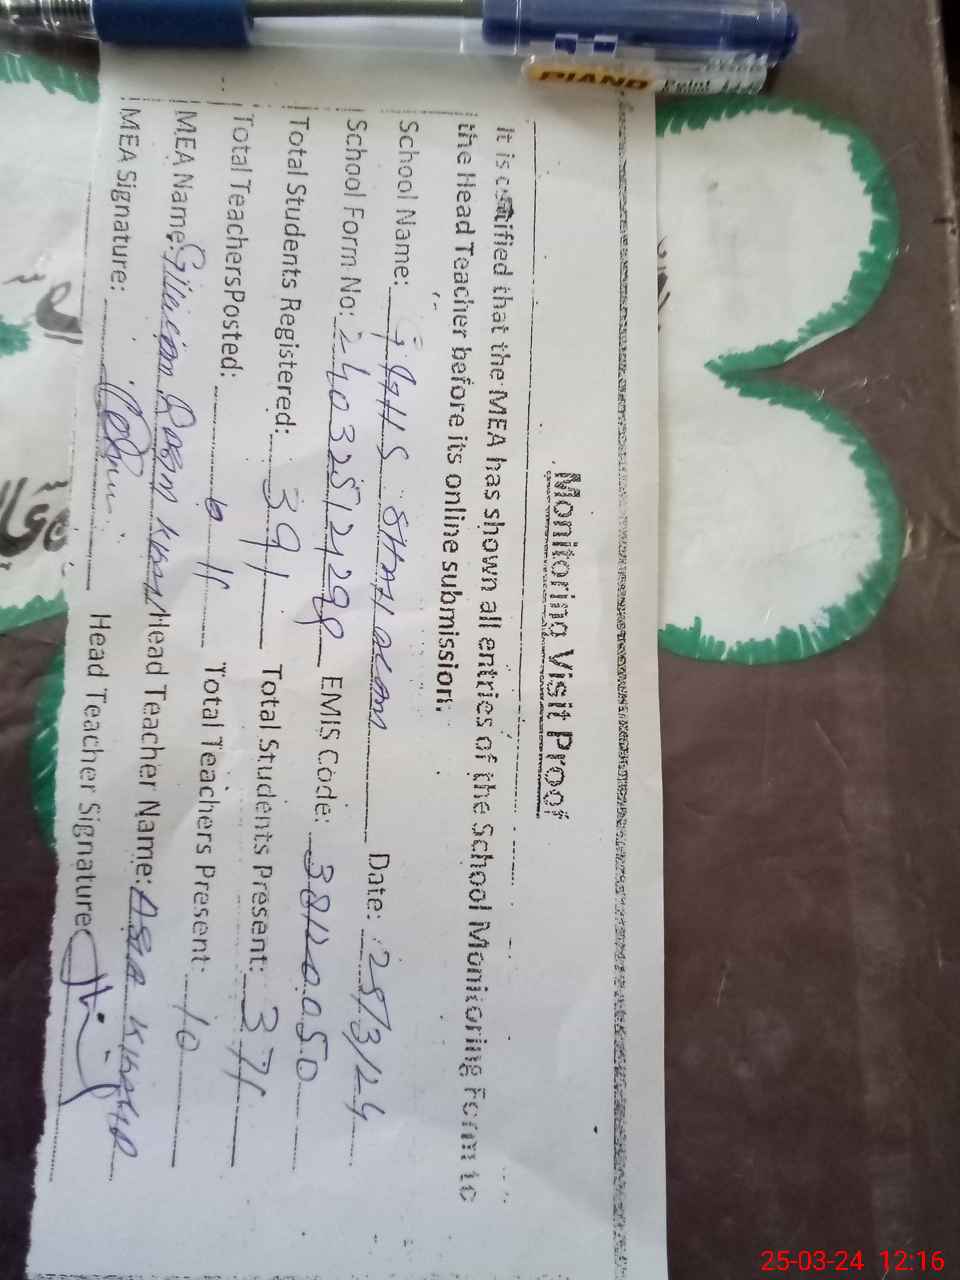 PIANO
Point
Monitoring Visit Proof
It is certified that the MEA has shown all entries of the School Monitoring Form to
the Head Teacher before its online submission.
School Name: GGHS Date: 25/3/24
School Form No: 240325121298 EMIS Code: 38120050
Total Students Registered: 391 Total Students Present: 371
Total TeachersPosted: 11 Total Teachers Present: 10
MEA Name: Khan Head Teacher Name: Asia
MEA Signature: Head Teacher Signature
25-03-24 12:16